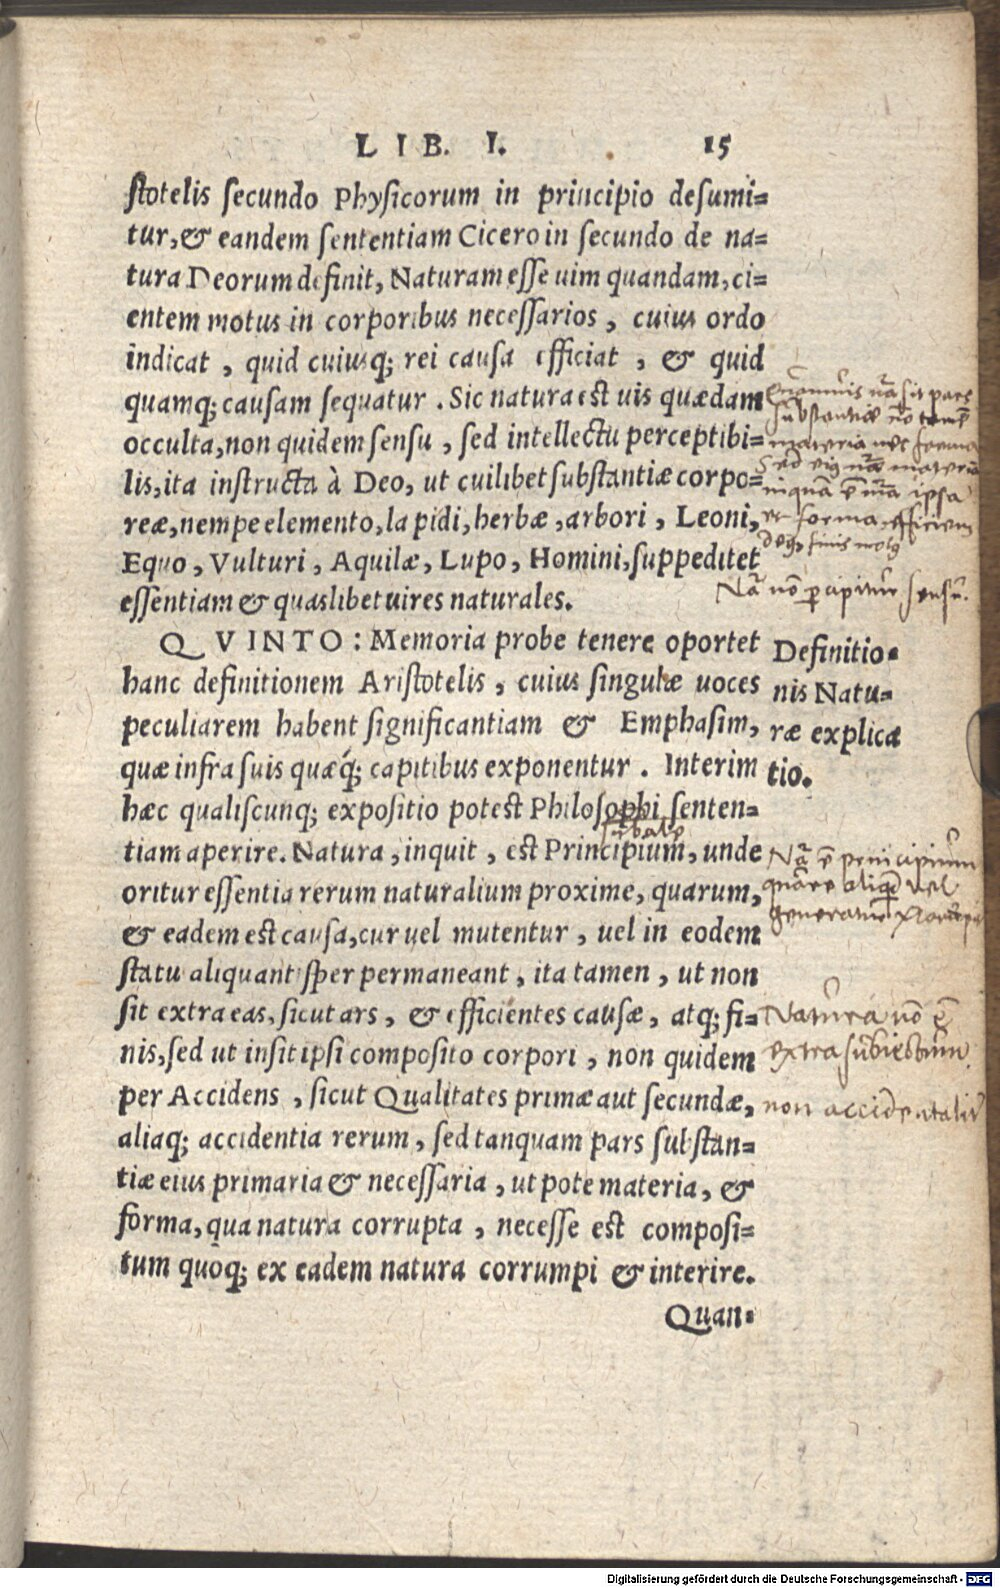 LIB. I. 15
ſtotelis ſecundo Phyſicorum in principio deſumi=
tur, & eandem ſententiam Cicero in ſecundo de na=
tura Deorum definit, Naturam eſſe uim quandam, ci=
entem motus in corporibus neceſſarios, cuius ordo
indicat, quid cuiusq; rei cauſa efficiat, & quid
quamq; cauſam ſequatur. Sic natura eſt uis quædam
occulta, non quidem ſenſu, ſed intellectu perceptibi=
lis, ita instructa à Deo, ut cuilibet ſubſtantiæ corpo=
reæ, nempe elemento, lapidi, herbæ, arbori, Leoni,
Equo, Vulturi, Aquilæ, Lupo, Homini, ſuppeditet
eſſentiam & quaslibet uires naturales.
Quamuis nā ſit pars
ſubſtantiæ nō tamē
materia nec forma
Sed eiq
materia
inquā ē ipſa
et forma efficiens
finis
Nā nō ꝑcipitur ſenſu.
QVINTO: Memoria probe tenere oportet
hanc definitionem Ariſtotelis, cuius ſingulæ uoces
peculiarem habent ſignificantiam & Emphaſim,
quæ infra ſuis quæq́; capitibus exponentur. Interim
hæc qualiſcunq; expoſitio poteſt Philoſophi ſenten=
tiam aperire. Natura, inquit, eſt Principium, unde
oritur eſſentia rerum naturalium proxime, quarum,
& eadem eſt cauſa, cur uel mutentur, uel in eodem
ſtatu aliquantiſper permaneant, ita tamen, ut non
ſit extra eas, ſicut ars, & efficientes cauſæ, atq; fi=
nis, ſed ut inſit ipſi compoſito corpori, non quidem
per Accidens, ſicut Qualitates primæ aut ſecundæ,
aliaq; accidentia rerum, ſed tanquam pars ſubſtan=
tiæ eius primaria & neceſſaria, ut pote materia, &
forma, qua natura corrupta, neceſſe eſt compoſi=
tum quoq; ex eadem natura corrumpi & interire.
Quan=
Definitio=
nis Natu=
ræ explica
tio.
Nā ē principium
quare aliqd vel
Natura nō ē
extra ſubiectum.
non accidentalit
Digitalisierung gefördert durch die Deutsche Forschungsgemeinschaft - DFG